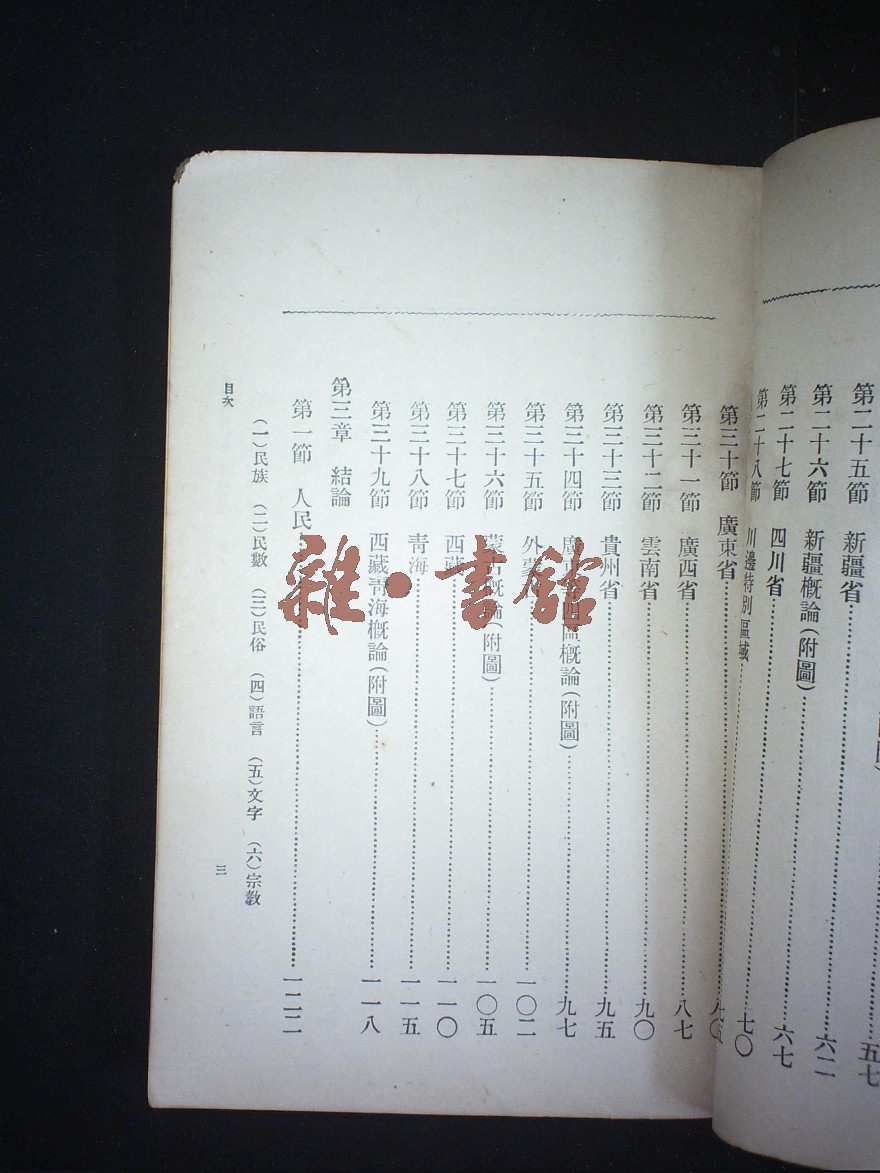 第二十五節 新疆省 五七
第二十六節 新疆概論(附圖) 六二
第二十七節 四川省 六七
第二十八節 川邊特別區域 七〇
第三十節 廣東省
第三十一節 廣西省 八七
第三十二節 雲南省 九〇
第三十三節 貴州省 九五
第三十四節 廣 概論(附圖) 九七
第三十五節 外蒙 一〇二
第三十六節 蒙古概論(附圖) 一〇五
第三十七節 西藏 一一〇
第三十八節 青海 一一五
第三十九節 西藏靑海概論(附圖) 一一八
第三章 結論
第一節 人民 一二二
(一)民族 (二)民數 (三)民俗 (四)語言 (五)文字 (六)宗教
目次
三
雜·書館